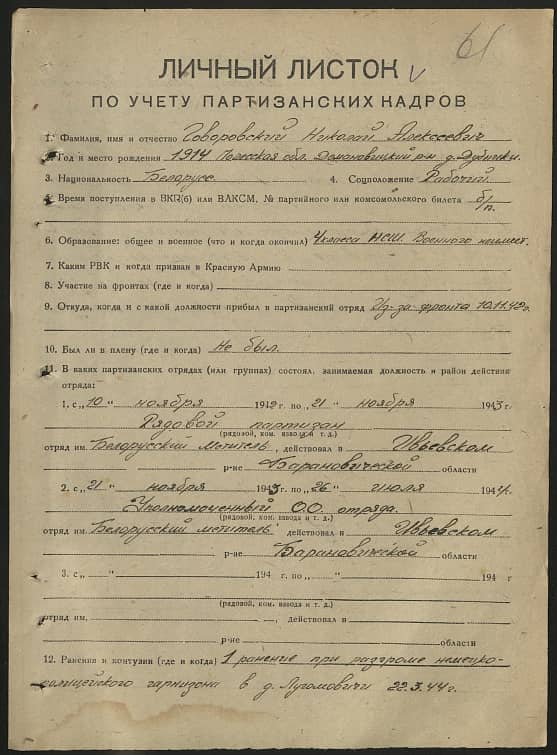 61
ЛИЧНЫЙ ЛИСТОК V
ПО УЧЕТУ ПАРТИЗАНСКИХ КАДРОВ
1. Фамилия, имя и отчество Говоровский Николай Алексеевич
2. Год и место рождения 1914 Полесская обл. Домановицкий р-н д. Дубняки.
3. Национальность Белорусс. 4. Соцположение Рабочий.
5. Время поступления в ВКП(б) или ВЛКСМ, № партийного или комсомольского билета б/п.
6. Образование: общее и военное (что и когда окончил) 4 класса НСШ. Военного неимеет.
7. Каким РВК и когда призван в Красную Армию
8. Участие на фронтах (где и когда)
9. Откуда, когда и с какой должности прибыл в партизанский отряд Из-за фронта 10.11.42г.
10. Был ли в плену (где и когда) Не был.
11. В каких партизанских отрядах (или группах) состоял, занимаемая должность и район действия
отряда:
1. с „10“ ноября 1942 г. по „21“ ноября 1943 г.
Рядовой партизан
(рядовой, ком. взвода и т. д.)
отряд им. Белорусский мститель, действовал в Ивьевском
р-не Барановической области
2. с „21“ ноября 1943 г. по „26“ июля 1944 г.
Уполномоченный О.О. отряда.
(рядовой, ком. взвода и т. д.)
отряд им. Белорусский мститель действовал в Ивьевском
р-не Барановической области
3. с „ “ 194 г. по „ “ 194 г
(рядовой, ком. взвода и т. д.)
отряд им. , действовал в
р-не области
12. Ранения и контузии (где и когда) 1 ранение при разгроме немецко-
полицейского гарнизона в д. Лугомовичи 22.3.44г.